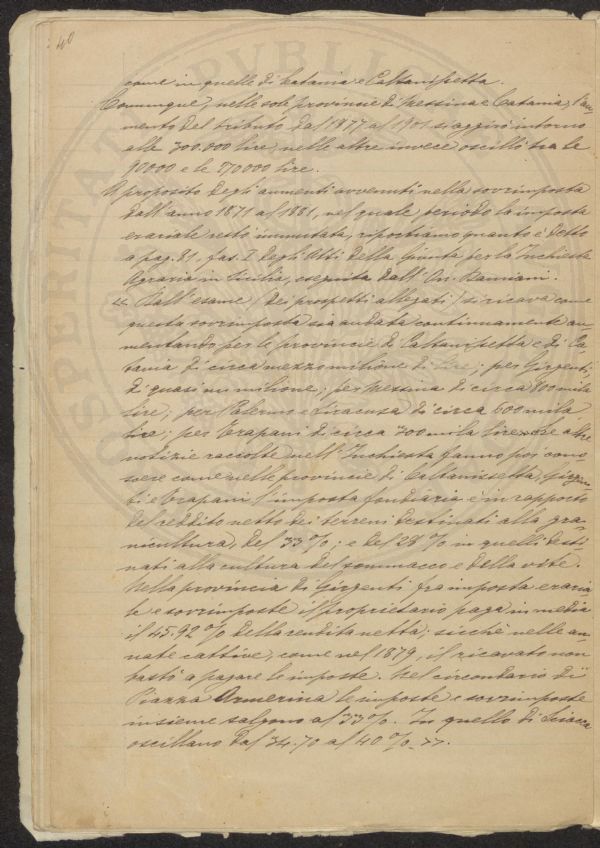 40
come in quelle di Catania e Caltanissetta.
Comunque, nelle sole provincie di Messina e Catania, l'au-
mento del tributo dal 1877 al 1901 si aggirò intorno
alle 300.000 lire, nelle altre invece oscillò tra le
90000 e le 270000 lire.
A proposito degli aumenti avvenuti nella sovrimposta
dall'anno 1871 al 1881, nel quale periodo la imposta
erariale restò immutata, riportiamo quanto è detto
a pag. 81, fas. I degli Atti della Giunta per la Inchiesta
Agraria in Sicilia, eseguita dall'On. Damiani.
"Dall'esame (dei prospetti allegati) si ricava come
questa sovrimposta sia andata continuamente au-
mentando per le provincie di Caltanissetta e di Ca-
tania di circa mezzo milione di lire; per Girgenti
di quasi un milione; per Messina di circa 800 mila
lire; per Palermo e Siracusa di circa 600 mila
lire; per Trapani di circa 300 mila lire. Le altre
notizie raccolte nell'Inchiesta fanno poi cono-
scere come nelle provincie di Caltanissetta, Girgen-
ti e Trapani l'imposta fondiaria è in rapporto
del reddito netto dei terreni destinati alla gra-
nicultura, del 33%; e del 28% in quelli desti-
nati alla cultura del sommacco e della vite.
Nella provincia di Girgenti, fra imposta eraria-
le e sovrimposte il proprietario paga in media
il 45.92% della rendita netta; sicchè nelle an-
nate cattive, come nel 1879, il ricavato non
bastò a pagare le imposte. Nel circondario di
Piazza Armerina le imposte e sovrimposte
insieme salgono al 33%. In quello di Sciacca
oscillano dal 34.70 al 40%.".